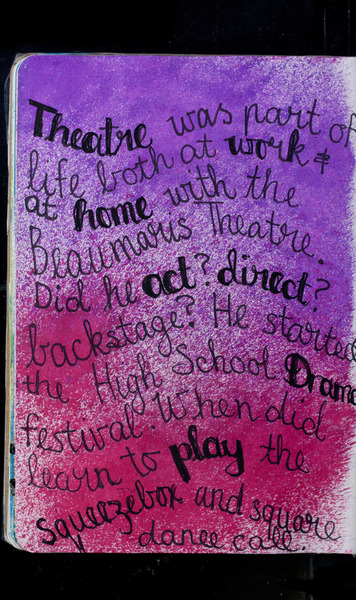 Theatre was part of
life both at work &
at home with the
Beaumaris Theatre.
Did he act? direct?
backstage? He started
the High School Drama
festival. When did
learn to play the
squeezebox and square
dance call.